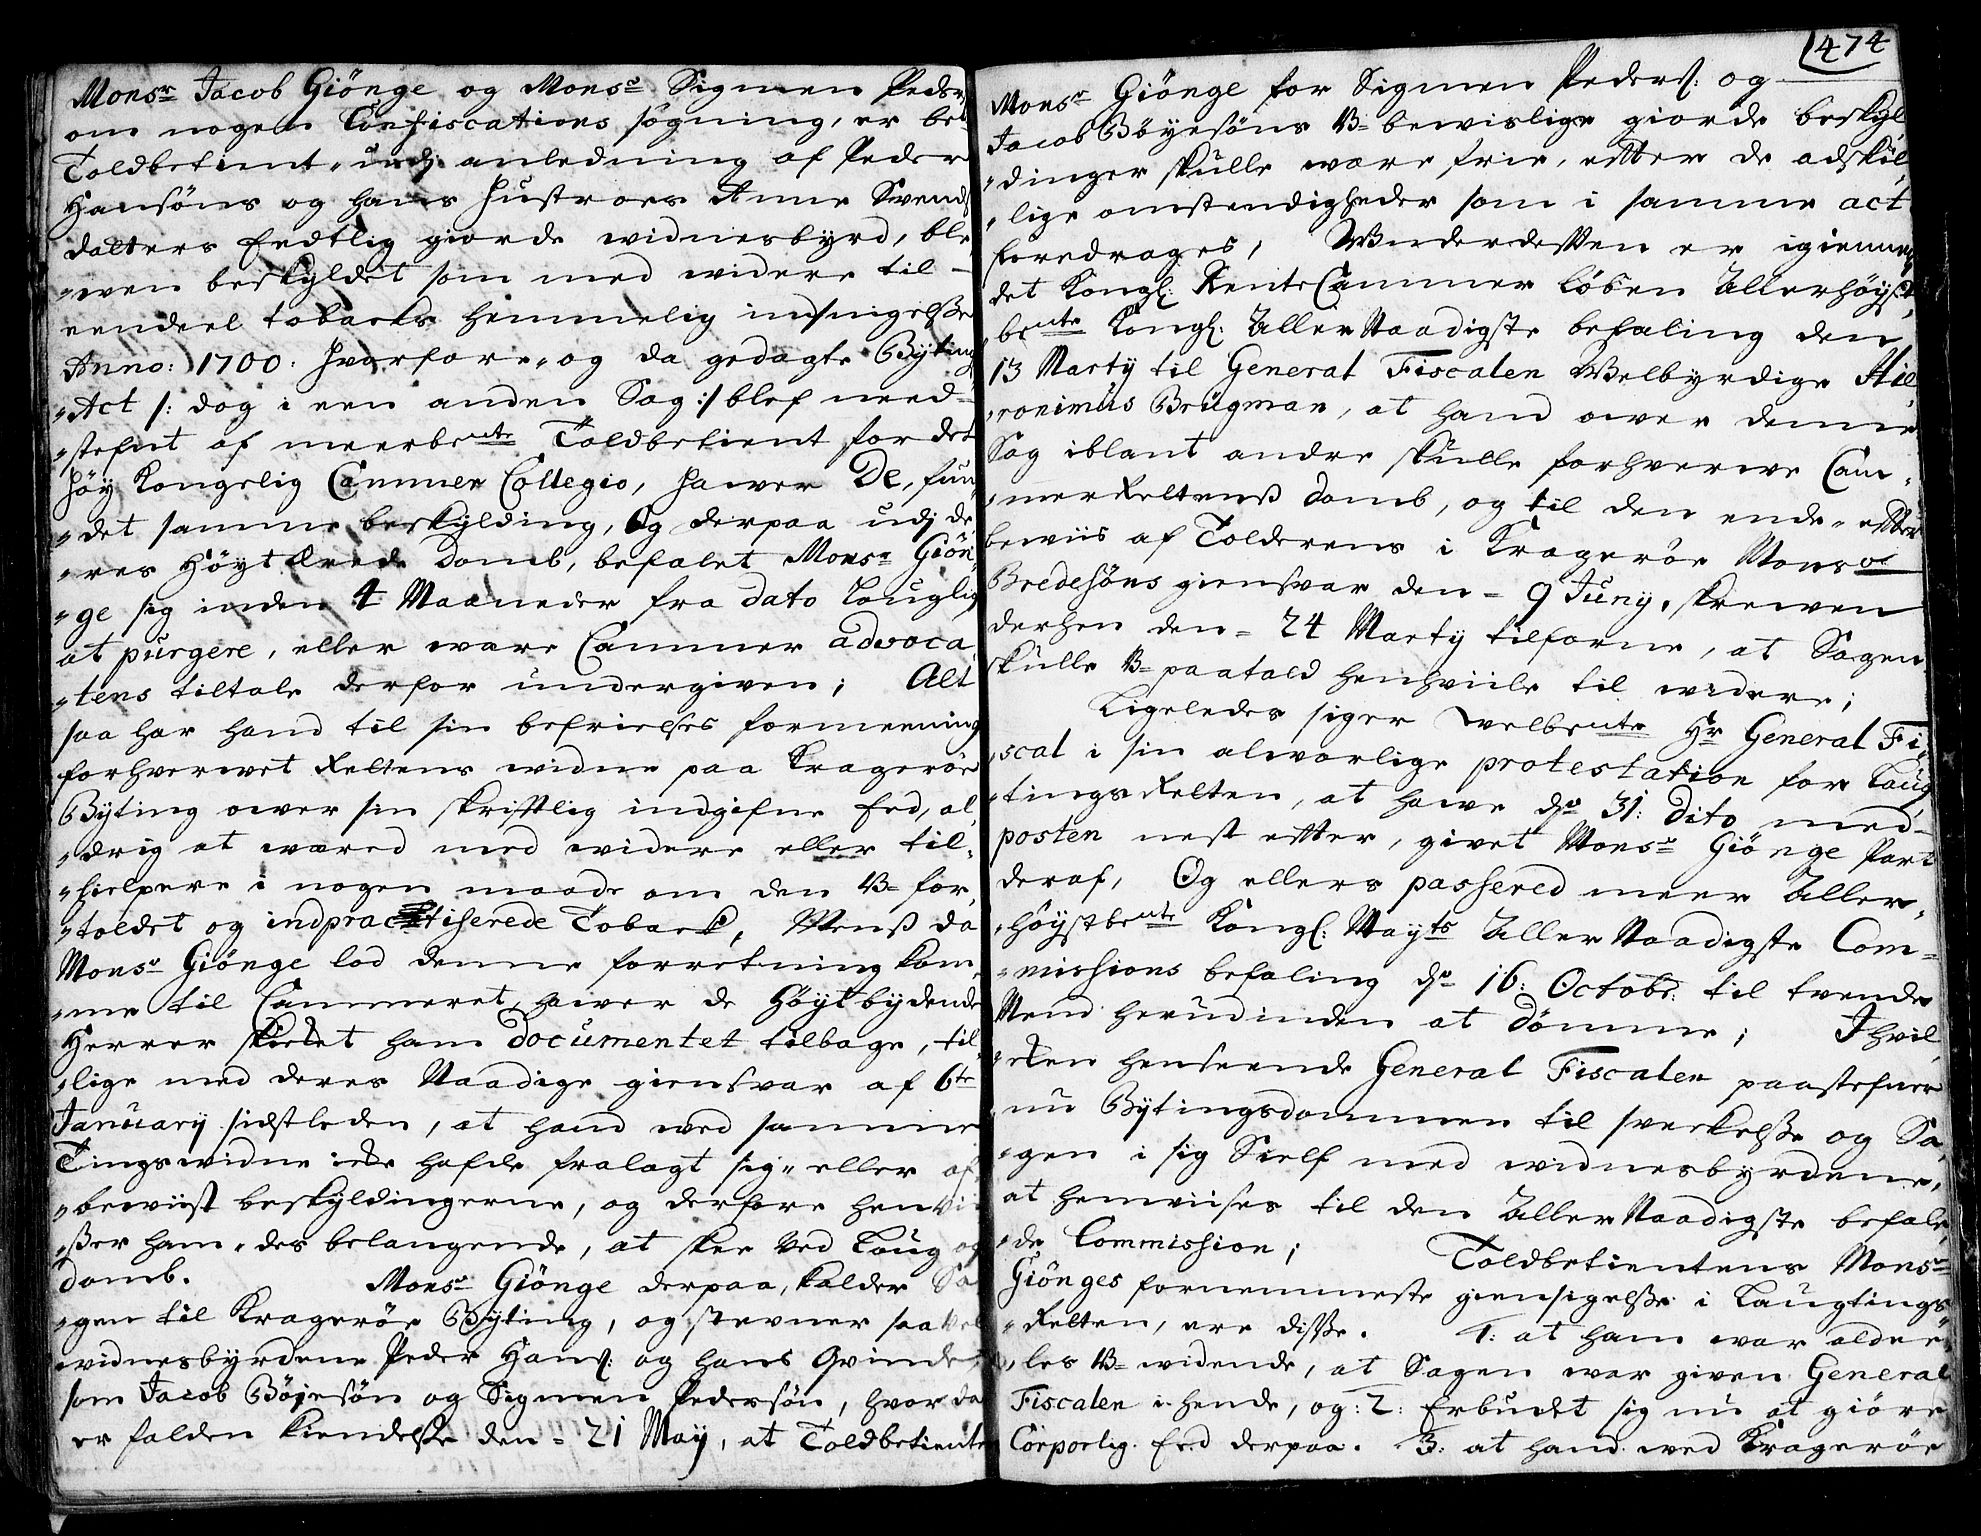 Monsr Jacob Giönge og Monsr Sigmen Peders:
om nogen Confiscations søgning, er bete
Toldbetient, udj anledning af Peder
Hansöns og hans Hustroes Anne Svends
datters Eedtlig giorde widnesbyrd, ble
„wen beskyldet som med widere til-
eendeel tobacks hemmelig indsnigelsse
Anno: 1700. Hvorfore, og da gedagte Byting
„Act /: dog i een anden Sag :/ blef need-
„stefnt af meerbente Toldbetient for det
Höy Kongelig Cammer Collegio, hawer De, fun„
„det samme beskylding, Og derpaa udj de
„res Höyt Ærede Domb, befalet Monsr Giön„
„ge sig inden 4 Maaneder fra dato Louglig
at purgere, eller ware Cammer advoca„
„tens tiltale derfor undergiven; Alt
saa har hand til sin befrielses formeening
forhverwet Rettens widne paa Kragerøe
Byting ower sin skrifftlig indgifne Eed, al„
„drig at wæred med widere eller til„
„hielpere i nogen maade om den U-for„
„toldet og indpractiserede Toback, Menss da
Monsr Giönge lod denne forretning kom„
„me til Cammeret, hawer de Höytbydende
Herrer skicket ham documentet tilbage, til„
„lige med deres Naadige giensvar af 6te
January sidstleden, at hand med samme
Tingswidne icke hafde fralagt sig, eller af
„bewiist beskyldingerne, og derfore henvi
„sser ham, des belangende, at skee ved Loug og
domb. Monsr Giönge derpaa, kalder Sa
„gen til Kragerøe Byting, og stevner saavel
widnesbyrdene Peder Hans: og hans Qvinde,
som Jacob Böjesön og Sigmen Pedersön, hvor da
er falden kiendelsse den - 21 May, at Toldbetiente
474
Monsr Giönge for Sigmen Peders: og
Jacob Böyesöns U-bewislige giorde beskyl
„dinger skulle være frie, efter de adskil„
„lige omstendigheder som i samme act
foredrages, Underdessen er igiennem
det Kongl: Rente Cammer løben Allerhöyst„
„bente Kongl: Aller Naadigste befaling den
13 Marty til General Fiscalen Welbyrdige Hie„
„ronimus Brügman, at hand ower denne
Sag iblant andre skulle forhverwe Cam„
„merRettens Domb, og til den ende, effter
bewiis af Tolderens i Kragerøe Monsr
Bredesöns giensvar den - 9 Juny, skrewen
derhen den - 24 Marty tilforne, at Sagen
skulle U-paatald henhviile til widere;
Ligeledes siger welbente Hr General Fi„
„scal i sin alvorlige protestation for Laug
„tings Retten, at hawe do 31: Dito med-
posten nest effter, givet Monsr Giönge Part
deraf, Og ellers passered meer Aller„
„höystbente Kongl: Mayts Aller Naadigste Com„
„missions befaling do 16: Octobr: til trende
Mend herudinden at dömme; I hvil„
„cken henseende General Fiscalen paastefner
nu Bytingsdommen til svekelsse og Sa„
„gen i sig Sielf med widnesbyrdene,
at henviises til den Aller Naadigste befale„
„de Commission; Toldbetientens Monsr
Giönges fornemmeste giensigelsse i Laugtings
„Retten, ere disse. 1: at ham war aldee„
„les U-widende, at Sagen war given General
Fiscalen i hende, og: 2: Erbudet sig nu at giöre
Corporlig Eed derpaa. 3: at hand wed Kragerøe